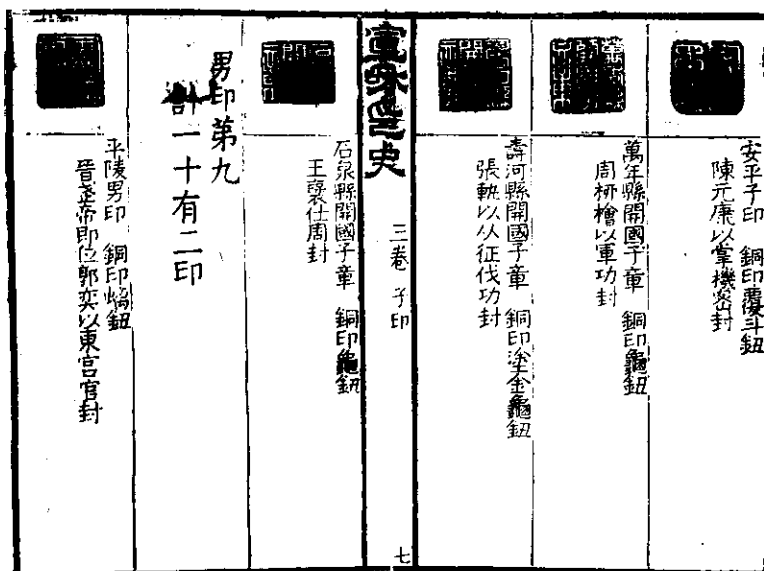 安平子印　銅印覆斗鈕
陳元康以掌機密封
萬年縣開國子章　銅印龜鈕
周柳檜以軍功封
壽河縣開國子章　銅印塗金龜鈕
張軌以从征伐功封
宣和印史
三卷　子印
七
石泉縣開國子章　銅印龜鈕
王襃仕周封
男印第九
計一十有二印
平陵男印　銅印鈕
晉武帝即位郭奕以東宮官封